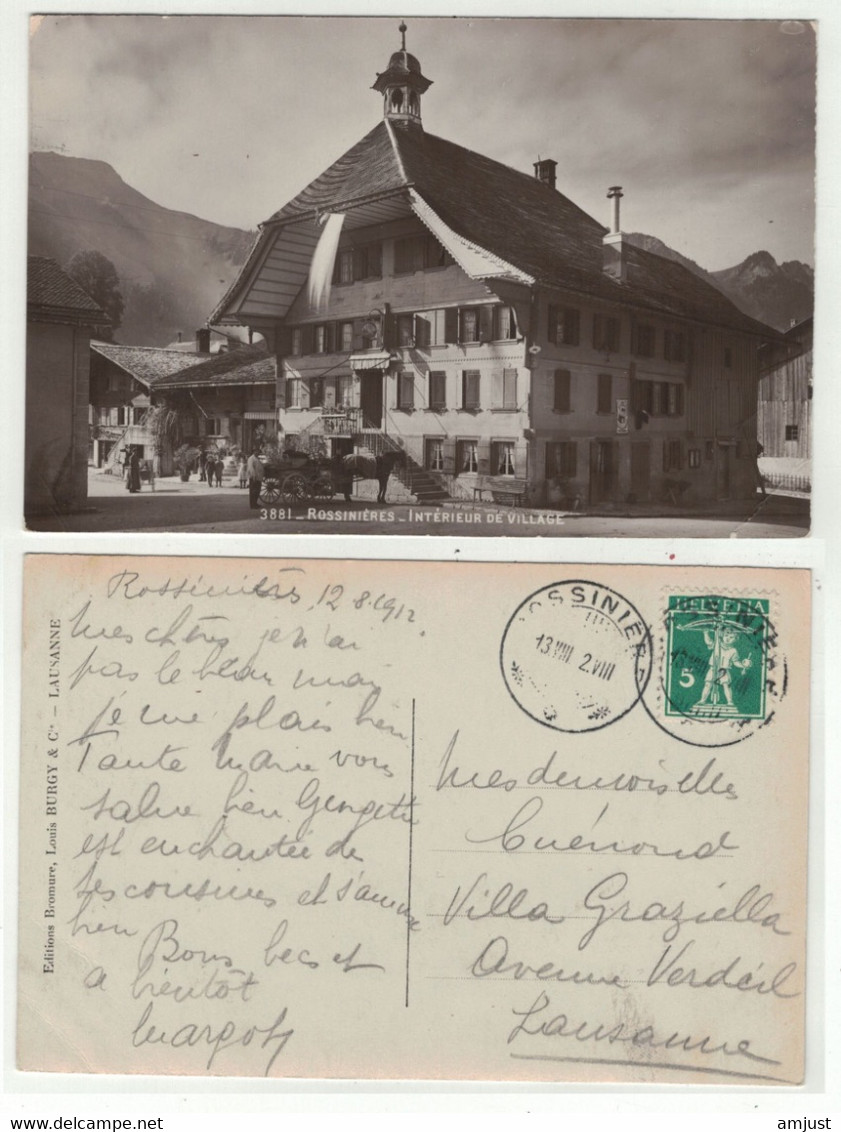 3881 _ ROSSINIÈRES _ INTÉRIEUR DE VILLAGE
Editions Bromure, Louis BURGY & Cie – LAUSANNE
Rossinières 12.8.1912
Mes chères je n'ai
pas le beau mais
je me plais bien
Tante Marie vous
salue bien Georgette
est enchantée de
ses cousines et s'amuse
bien
Bons becs et
a bientôt
Margot
ROSSINIÈRES
13.VIII 2.VIII
HELVETIA
5
Mesdemoiselles
Guénond
Villa Graziella
Avenue Verdeil
Lausanne
www.delcampe.net
amjust